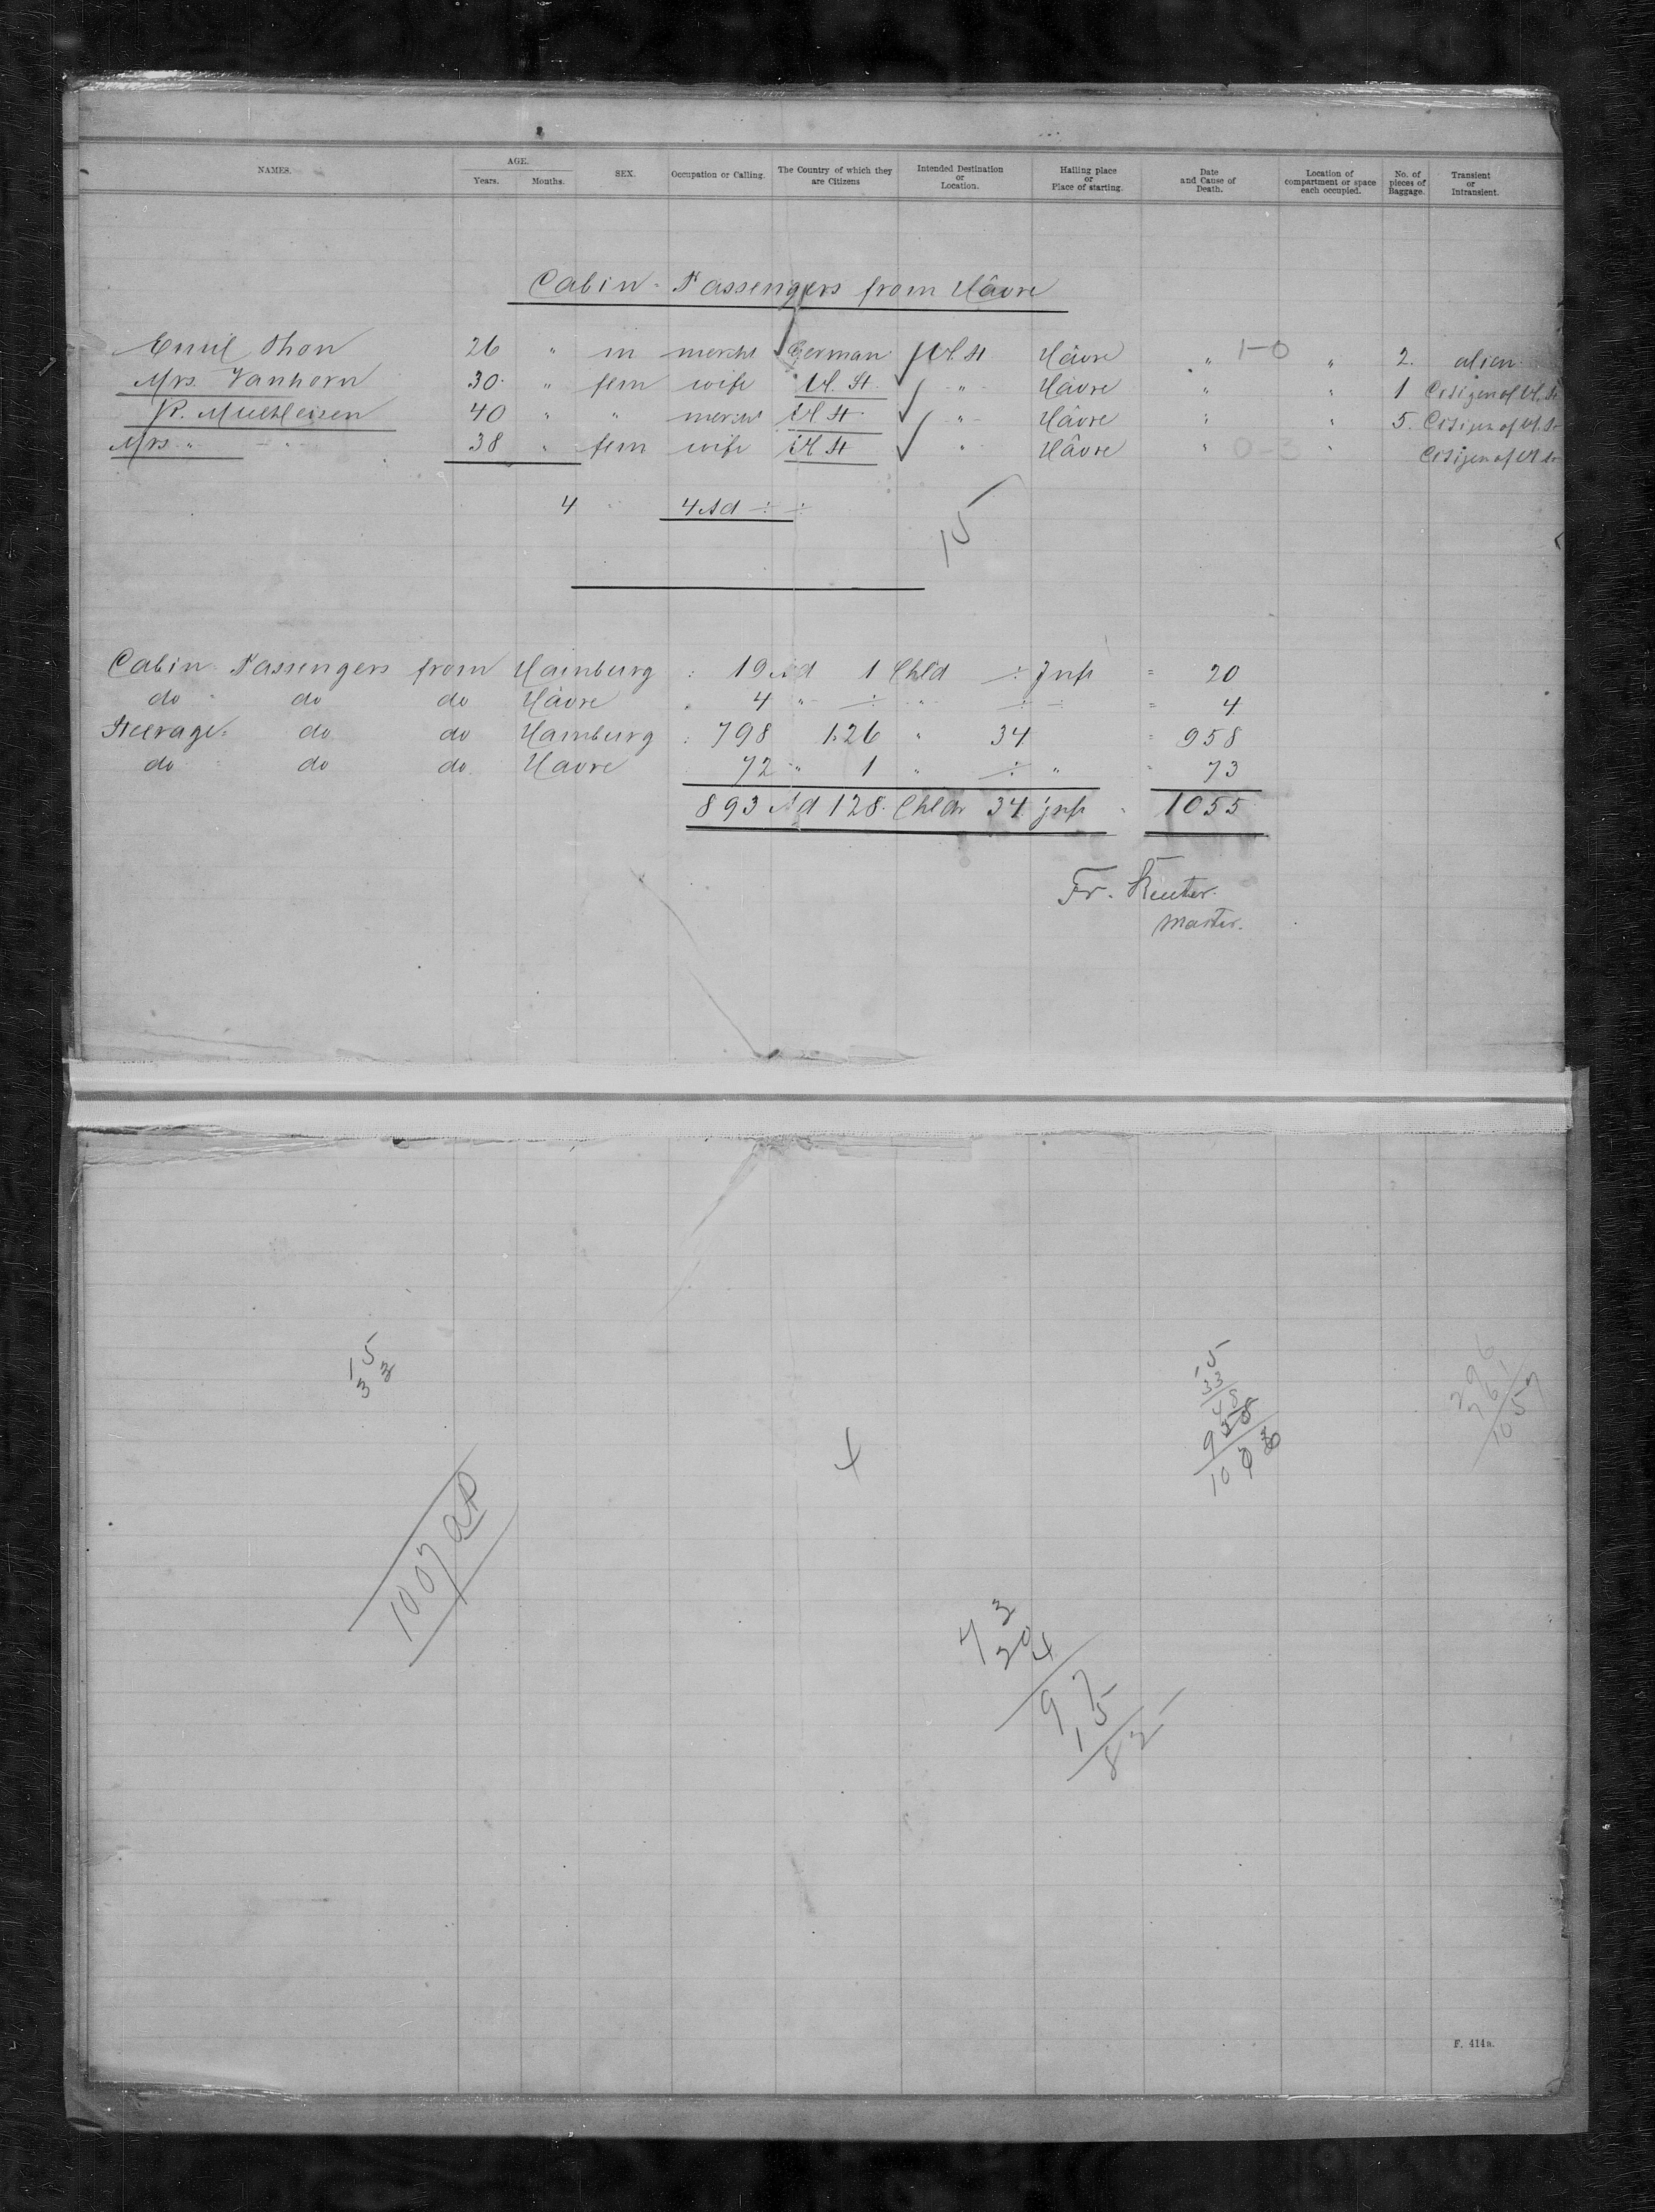 NAMES. AGE. Years. Months. SEX. Occupation or Calling. The Country of which they are Citizens Intended Destination or Location. Hailing place or Place of starting. Date and Cause of Death. Location of compartment or space each occupied. No. of pieces of Baggage. Transient or Intransient.
Cabin Passengers from Hâvre
Emil Thon 26 " m mercht German U. St Hâvre " 1-0 " 2. alien
Mrs. Vanhorn 30 " fem wife U. St. " Hâvre " " 1 Citizen of U. St
R. Muehleisen 40 " " mercht U St " Hâvre " " 5. Citizen of U. St
Mrs " " 38 " fem wife U St " Hâvre " 0-3 " Citizen of U St
4 4 Ad ÷ ÷
15
Cabin Passengers from Hamburg : 19 Ad 1 Chld ÷ Inft = 20
do do do Hâvre 4 " ÷ " ÷ = 4
Steerage do do Hamburg : 798 126 " 34 = 958
do do do Havre 72 " 1 " ÷ " = 73
893 Ad 128 Chldr 34 Inft 1055
Fr. Reuter.
Master.
15
33
15
33
48
958
10
296
761
1057
1007
4
73
20
4
97
15
82
F. 414a.